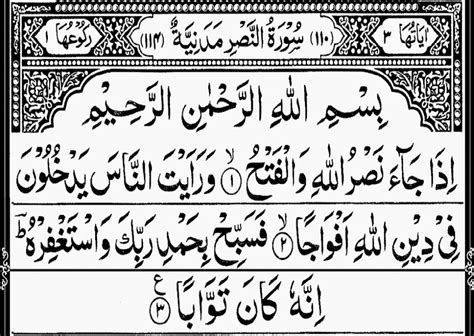 اٰیَاتُهَا ٣ (١١٠) سُوْرَةُ النَّصْرِ مَدَنِيَّةٌ (١١٤) رُكُوْعُهَا ١
بِسْمِ اللهِ الرَّحْمٰنِ الرَّحِيْمِ
اِذَا جَآءَ نَصْرُ اللهِ وَالْفَتْحُ ۙ ١ وَرَاَيْتَ النَّاسَ يَدْخُلُوْنَ
فِيْ دِيْنِ اللهِ اَفْوَاجًا ۙ ٢ فَسَبِّحْ بِحَمْدِ رَبِّكَ وَاسْتَغْفِرْهُ ؕ
اِنَّهٗ كَانَ تَوَّابًا ع ٣